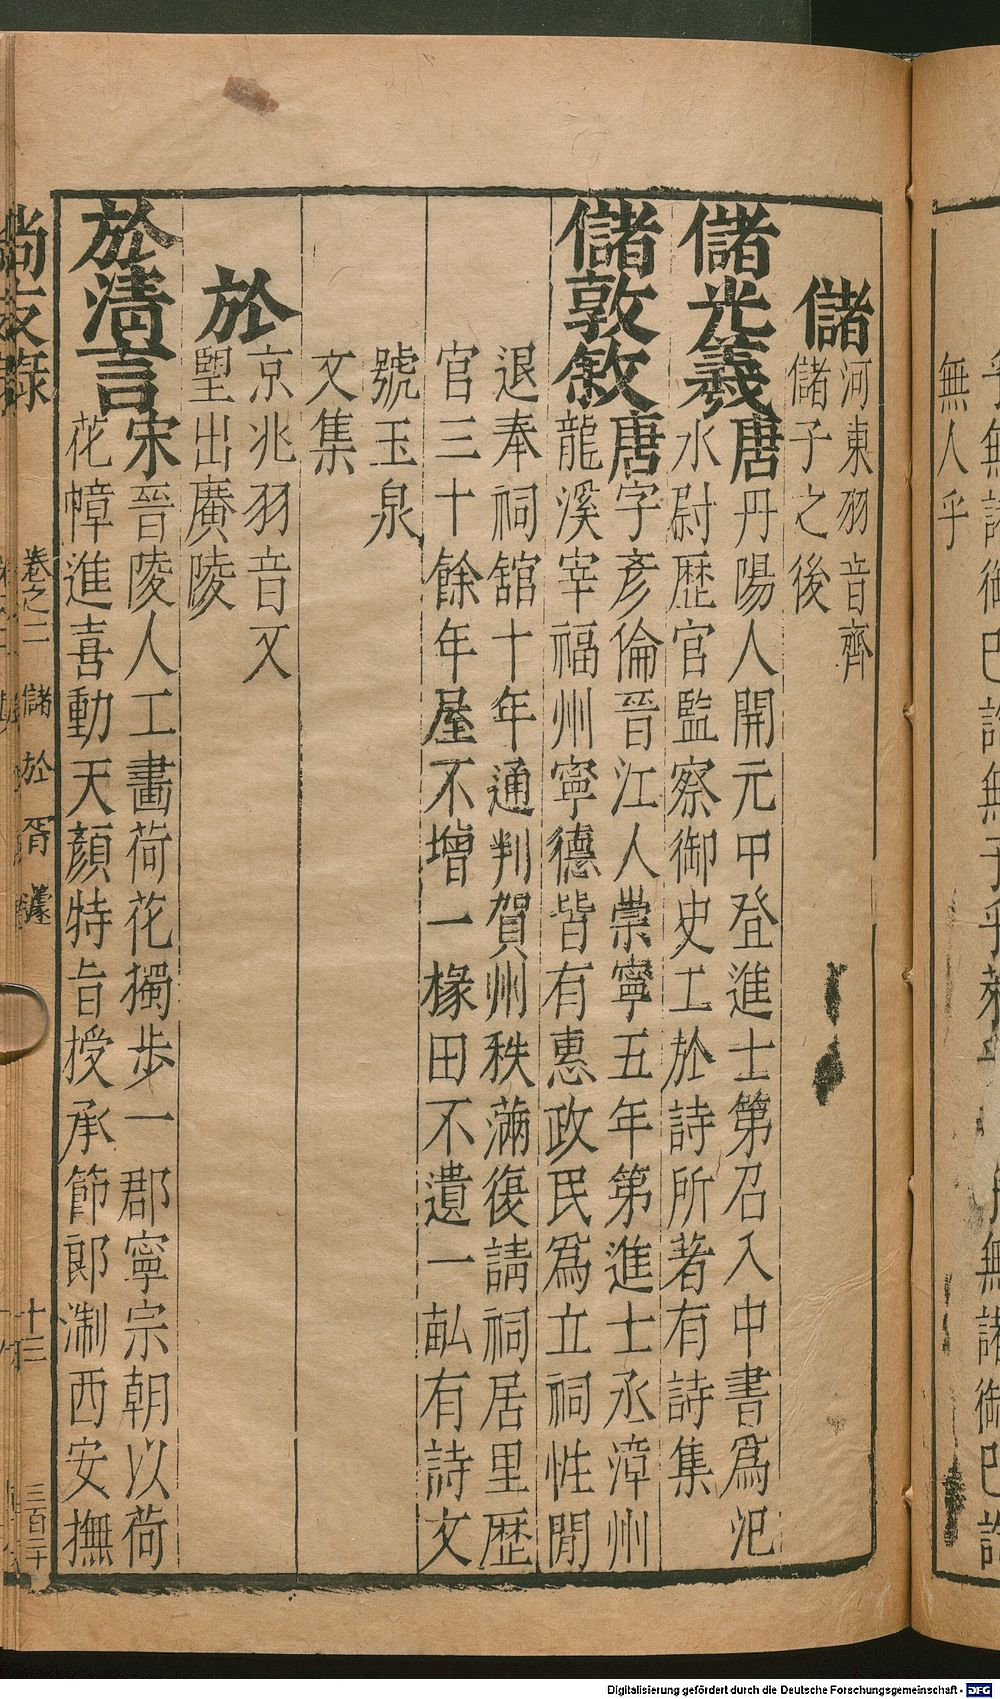 儲
河東羽音齊
儲子之後
儲光羲唐丹陽人開元甲登進士第召入中書爲汜
水尉歷官監察御史工於詩所著有詩集
儲敦敘唐字彥倫晉江人崇寧五年第進士丞漳州
龍溪宰福州寧德皆有惠政民爲立祠性閒
退奉祠舘十年通判賀州秩滿復請祠居里歷
官三十餘年屋不增一椽田不遺一畆有詩文
號玉泉
文集
於
京兆羽音又
望出廣陵
於清言宋晉陵人工畫荷花獨步一郡寧宗朝以荷
花幛進喜動天顏特旨授承節郎淛西安撫
尚友錄 卷之二 儲 於 胥 十三 三百二十
無人乎
Digitalisierung gefördert durch die Deutsche Forschungsgemeinschaft - DFG